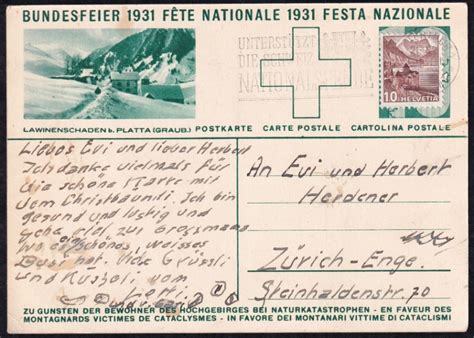 BUNDESFEIER 1931 FÊTE NATIONALE 1931 FESTA NAZIONALE
UNTERSTÜTZT
DIE
NATIONALSPENDE
10 HELVETIA
LAWINENSCHADEN b. PLATTA (GRAUB.) POSTKARTE CARTE POSTALE CARTOLINA POSTALE
Liebes Evi und lieber Herbert
Ich danke vielmals für
die schöne Karte mit
dem Christbaumdli. Ich bin
gesund und lustig und
gehe viel zur Grossmama
wo es ein schönes, weisses
hat. Viele Grüssli
und Küsheli vom
An Evi und Herbert
Herdener
Zürich-Enge.
Steinhaldenstr. 70
ZU GUNSTEN DER BEWOHNER DES HOCHGEBIRGES BEI NATURKATASTROPHEN - EN FAVEUR DES
MONTAGNARDS VICTIMES DE CATACLYSMES - IN FAVORE DEI MONTANARI VITTIME DI CATACLISMI